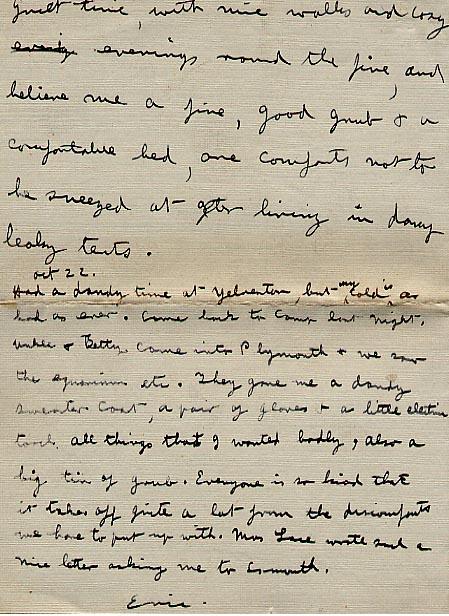 quiet time, with nice walks and cosy
evenings round the fire, and
believe me a fire, good grub & a
comfortable bed, are comforts not to
be sneezed at after living in damp
leaky tents.
Oct 22.
Had a dandy time at Yelverton, but my cold is as
bad as ever. Came back to camp last night.
& Betty came into Plymouth & we saw
the aquarium etc. They gave me a dandy
sweater coat, a pair of gloves & a little electric
torch, all things that I wanted badly, also a
big tin of grub. Everyone is so kind that
it takes off quite a lot from the discomforts
we have to put up with. Mrs wrote such a
nice letter asking me to Exmouth.
Eric.